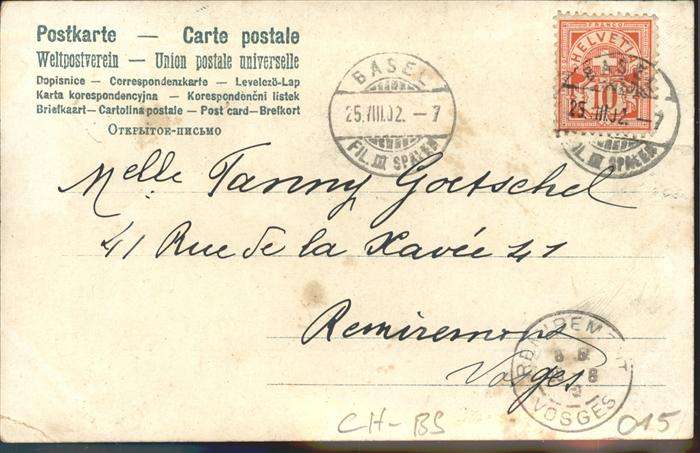 Postkarte — Carte postale
Weltpostverein — Union postale universelle
Dopisnice — Correspondenzkarte — Levelező-Lap
Karta korespondencyjna — Korespondenční lístek
Briefkaart — Cartolina postale — Post card — Brefkort
Открытое-письмо
BASEL
25.VIII.02. — 7
FIL. III SPALEN
FRANCO
HELVETIA
10
BASEL
25.VIII.02. — 7
FIL. III SPALEN
Melle Fanny Goetschel
41 Rue de la Xavée 41
Remiremont
Vosges
REMIREMONT
VOSGES
CH-BS
015